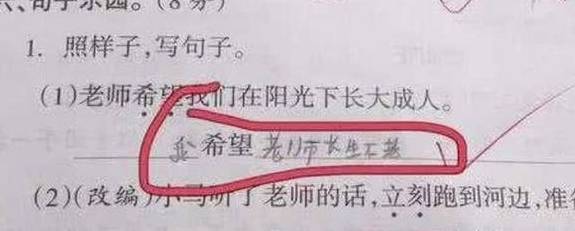 、句子乐园。(8分)
1. 照样子,写句子。
(1)老师希望我们在阳光下长大成人。
我希望老师长生不老
(2)(改编)小马听了老师的话,立刻跑到河边,准